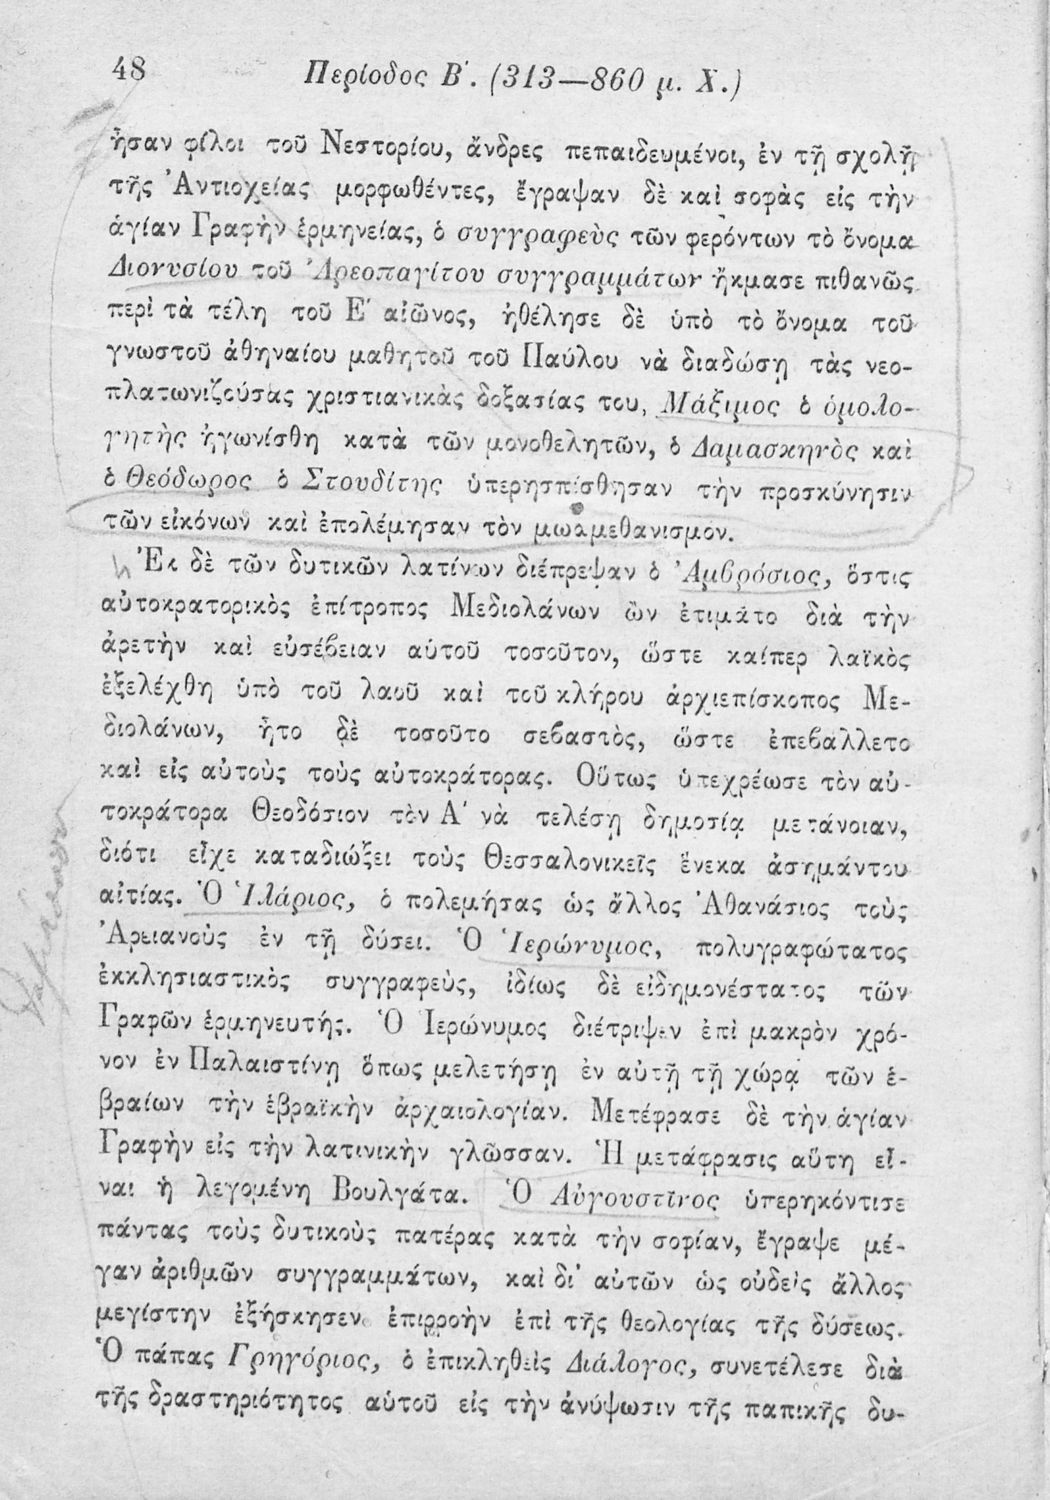 48
Περίοδος Β΄. (313—860 μ. Χ.)
ἦσαν φίλοι τοῦ Νεστορίου, ἄνδρες πεπαιδευμένοι, ἐν τῇ σχολῇ
τῆς Ἀντιοχείας μορφωθέντες, ἔγραψαν δὲ καὶ σοφὰς εἰς τὴν
ἁγίαν Γραφὴν ἑρμηνείας, ὁ συγγραφεὺς τῶν φερόντων τὸ ὄνομα
Διονυσίου τοῦ Ἀρεοπαγίτου συγγραμμάτων ἤκμασε πιθανῶς
περὶ τὰ τέλη τοῦ Ε΄ αἰῶνος, ἠθέλησε δὲ ὑπὸ τὸ ὄνομα τοῦ
γνωστοῦ ἀθηναίου μαθητοῦ τοῦ Παύλου νὰ διαδώσῃ τὰς νεο-
πλατωνιζούσας χριστιανικὰς δοξασίας του, Μάξιμος ὁ ὁμολο-
γητὴς ἠγωνίσθη κατὰ τῶν μονοθελητῶν, ὁ Δαμασκηνὸς καὶ
ὁ Θεόδωρος ὁ Στουδίτης ὑπερησπίσθησαν τὴν προσκύνησιν
τῶν εἰκόνων καὶ ἐπολέμησαν τὸν μωαμεθανισμόν.
Ἐκ δὲ τῶν δυτικῶν λατίνων διέπρεψαν ὁ Ἀμβρόσιος, ὅστις
αὐτοκρατορικὸς ἐπίτροπος Μεδιολάνων ὢν ἐτιμᾶτο διὰ τὴν
ἀρετὴν καὶ εὐσέβειαν αὐτοῦ τοσοῦτον, ὥστε καίπερ λαϊκὸς
ἐξελέχθη ὑπὸ τοῦ λαοῦ καὶ τοῦ κλήρου ἀρχιεπίσκοπος Με-
διολάνων, ἦτο δὲ τοσοῦτο σεβαστὸς, ὥστε ἐπεβάλλετο
καὶ εἰς αὐτοὺς τοὺς αὐτοκράτορας. Οὕτως ὑπεχρέωσε τὸν αὐ-
τοκράτορα Θεοδόσιον τὸν Α΄ νὰ τελέσῃ δημοσίᾳ μετάνοιαν,
διότι εἶχε καταδιώξει τοὺς Θεσσαλονικεῖς ἕνεκα ἀσημάντου
αἰτίας. Ὁ Ἱλάριος, ὁ πολεμήσας ὡς ἄλλος Ἀθανάσιος τοὺς
Ἀρειανοὺς ἐν τῇ δύσει. Ὁ Ἱερώνυμος, πολυγραφώτατος
ἐκκλησιαστικὸς συγγραφεὺς, ἰδίως δὲ εἰδημονέστατος τῶν
Γραφῶν ἑρμηνευτής. Ὁ Ἱερώνυμος διέτριψεν ἐπὶ μακρὸν χρό-
νον ἐν Παλαιστίνῃ ὅπως μελετήσῃ ἐν αὐτῇ τῇ χώρᾳ τῶν ἑ-
βραίων τὴν ἑβραϊκὴν ἀρχαιολογίαν. Μετέφρασε δὲ τὴν ἁγίαν
Γραφὴν εἰς τὴν λατινικὴν γλῶσσαν. Ἡ μετάφρασις αὕτη εἶ-
ναι ἡ λεγομένη Βουλγάτα. Ὁ Αὐγουστῖνος ὑπερηκόντισε
πάντας τοὺς δυτικοὺς πατέρας κατὰ τὴν σοφίαν, ἔγραψε μέ-
γαν ἀριθμῶν συγγραμμάτων, καὶ δι' αὐτῶν ὡς οὐδεὶς ἄλλος
μεγίστην ἐξήσκησεν ἐπιρροὴν ἐπὶ τῆς θεολογίας τῆς δύσεως.
Ὁ πάπας Γρηγόριος, ὁ ἐπικληθεὶς Διάλογος, συνετέλεσε διὰ
τῆς δραστηριότητος αὐτοῦ εἰς τὴν ἀνύψωσιν τῆς παπικῆς δυ-